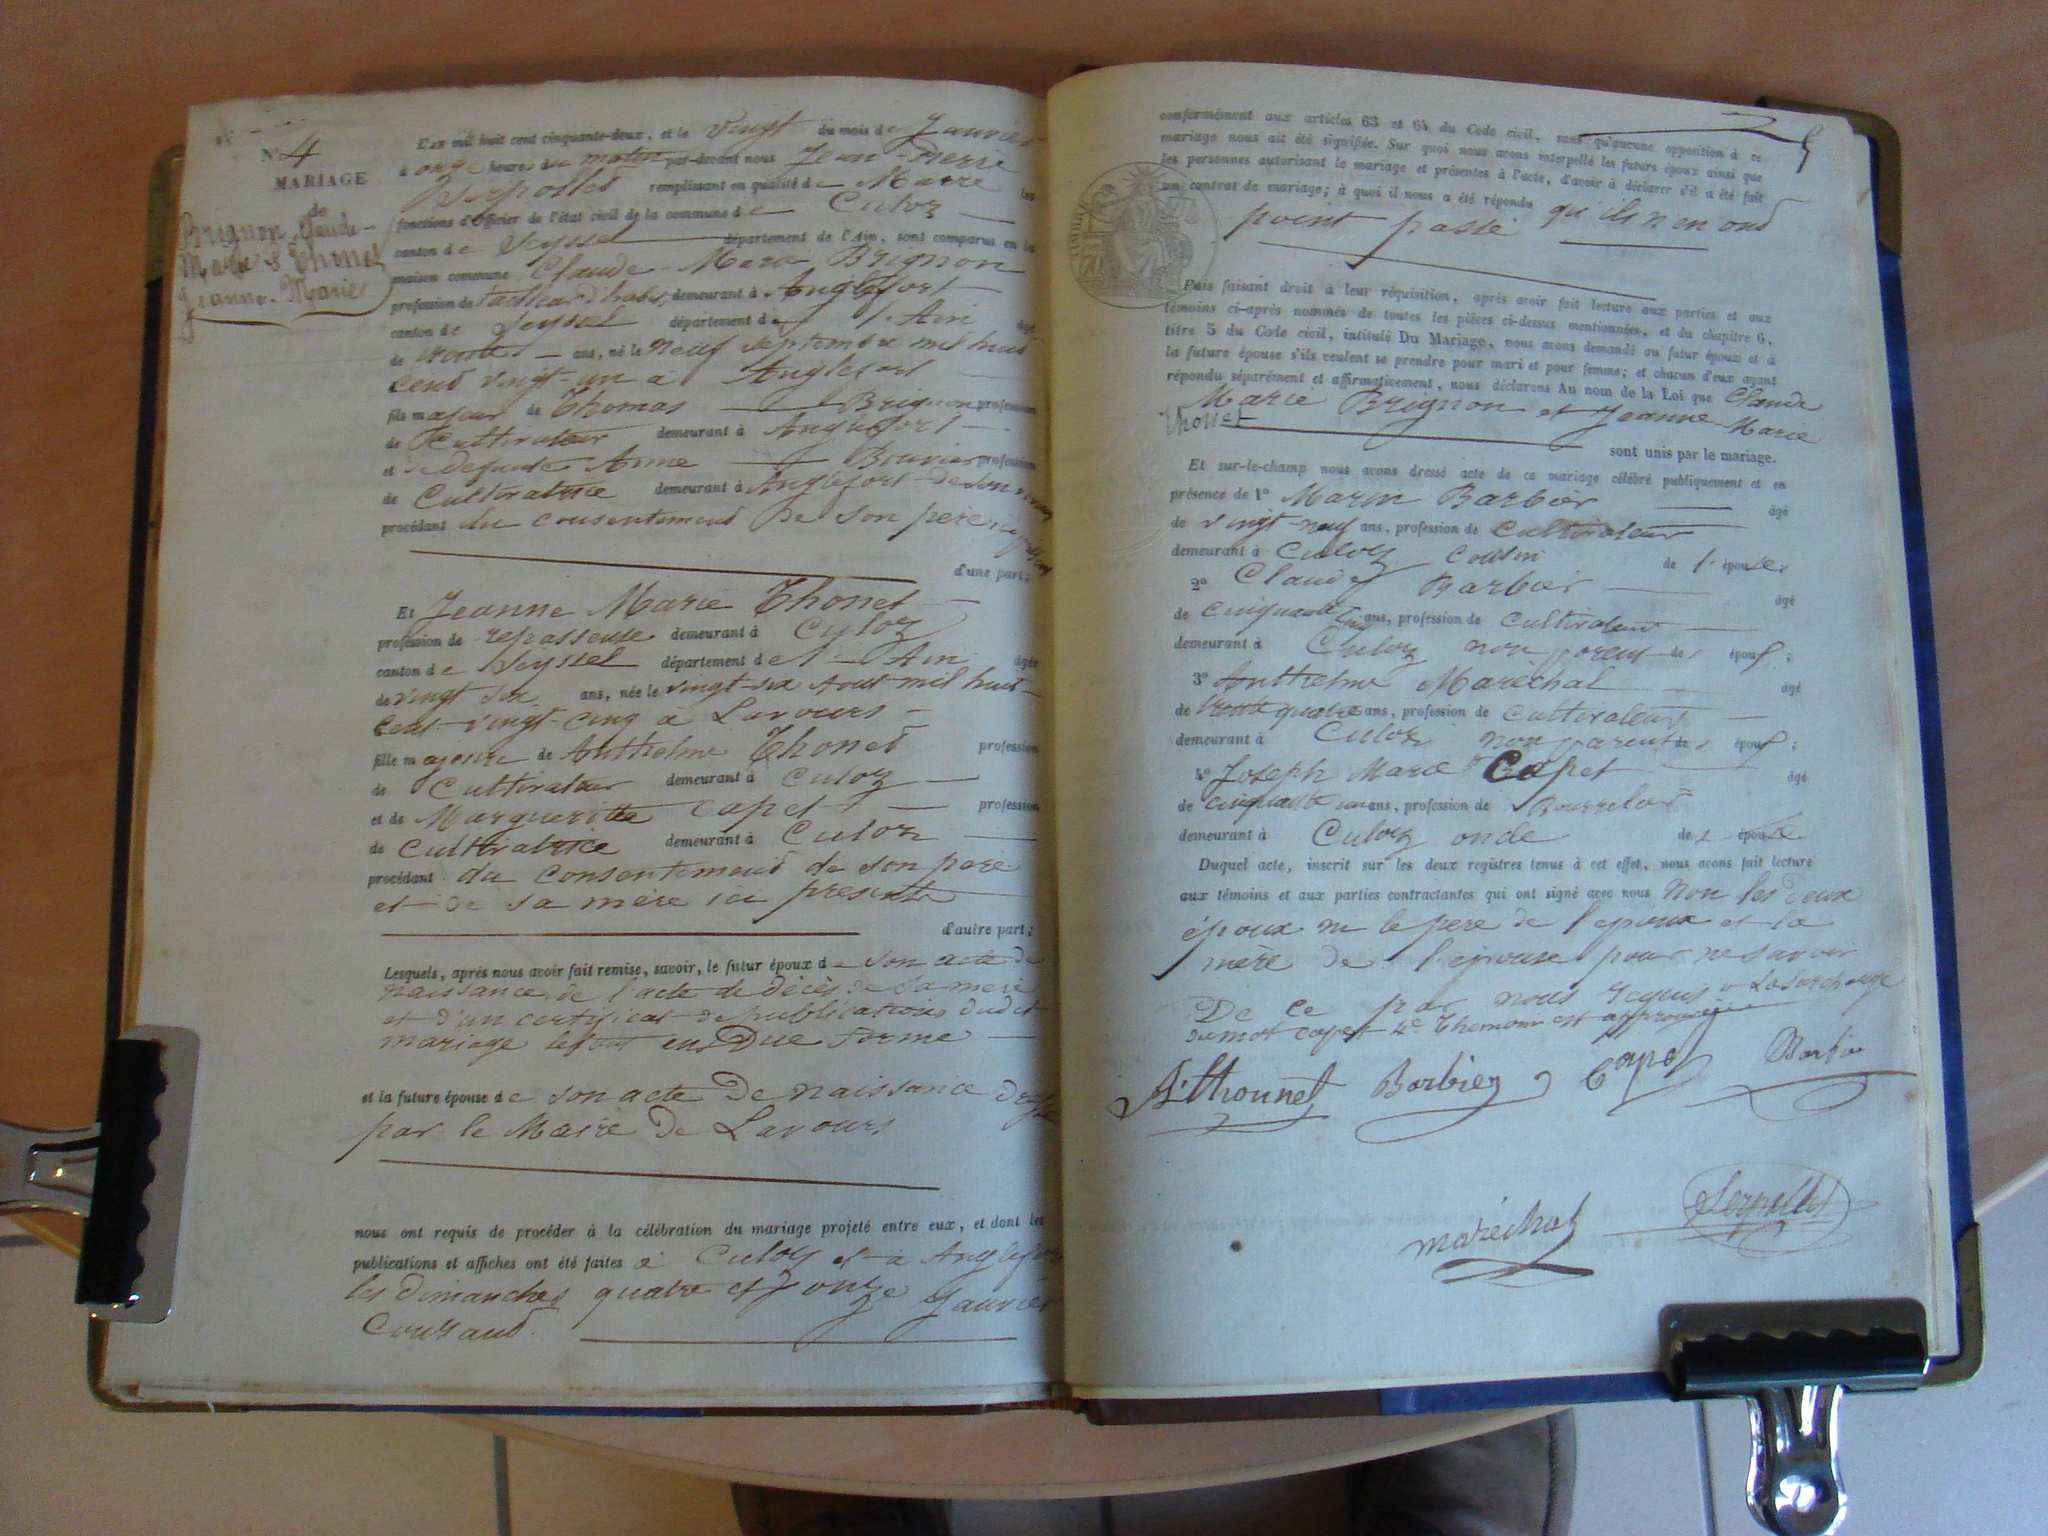 N° 4
MARIAGE
de
Brignon Claude-
Marie & Thonet
Jeanne-Marie
L'an mil huit cent cinquante-deux, et le vingt du mois de Janvier
à onze heures du matin par-devant nous Jean-Pierre
Serpollet remplissant en qualité de Maire les
fonctions d'Officier de l'état civil de la commune de Culoz
canton de Seyssel département de l'Ain, sont comparus en la
maison commune Claude-Marie Brignon
profession de tailleur d'habits, demeurant à Anglefort
canton de Seyssel département de l'Ain âgé
de trente ans, né le neuf septembre mil huit
cent vingt-un à Anglefort
fils majeur de Thomas Brignon profession
de Cultivateur demeurant à Anglefort
et de défunte Anne Bouvier profession
de Cultivatrice demeurant à Anglefort de son vivant
procédant du consentement de son père ici présent
d'une part;
Et Jeanne Marie Thonet
profession de repasseuse demeurant à Culoz
canton de Seyssel département de l'Ain âgée
de vingt six ans, née le vingt-six Aout mil huit
cent vingt-cinq à Lavours
fille majeure de Anthelme Thonet profession
de Cultivateur demeurant à Culoz
et de Margueritte Capet profession
de Cultivatrice demeurant à Culoz
procédant du consentement de son père
et de sa mère ici présents
d'autre part;
Lesquels, après nous avoir fait remise, savoir, le futur époux de son acte de
naissance, de l'acte de décès de sa mère
et d'un certificat de publications dudit
mariage le tout en Due forme
et la future épouse de son acte de naissance
par le Maire de Lavours
nous ont requis de procéder à la célébration du mariage projeté entre eux, et dont les
publications et affiches ont été faites à Culoz et à Anglefort
les dimanches quatre et onze Janvier
Courant.
conformément aux articles 63 et 64 du Code civil, sans qu'aucune opposition à ce
mariage nous ait été signifiée. Sur quoi nous avons interpellé les futurs époux ainsi que
les personnes autorisant le mariage et présentes à l'acte, d'avoir à déclarer s'il a été fait
un contrat de mariage; à quoi il nous a été répondu qu'ils n'en ont
point passé
Puis faisant droit à leur réquisition, après avoir fait lecture aux parties et aux
témoins ci-après nommés de toutes les pièces ci-dessus mentionnées, et du chapitre 6,
titre 5 du Code civil, intitulé Du Mariage, nous avons demandé au futur époux et à
la future épouse s'ils veulent se prendre pour mari et pour femme; et chacun d'eux ayant
répondu séparément et affirmativement, nous déclarons Au nom de la Loi que Claude
Marie Brignon et Jeanne-Marie
Thonet
sont unis par le mariage.
Et sur-le-champ nous avons dressé acte de ce mariage célébré publiquement et en
présence de 1° Marin Barbier âgé
de vingt-neuf ans, profession de Cultivateur
demeurant à Culoz cousin de l'épouse
2° Claude Barbier âgé
de cinquante cinq ans, profession de Cultivateur
demeurant à Culoz non parent des époux;
3° Anthelme Maréchal âgé
de trente quatre ans, profession de Cultivateur
demeurant à Culoz non parent des époux;
4° Joseph Marie Capet âgé
de cinquante un ans, profession de Bourrelier
demeurant à Culoz oncle de l'épouse
Duquel acte, inscrit sur les deux registres tenus à cet effet, nous avons fait lecture
aux témoins et aux parties contractantes qui ont signé avec nous non les deux
époux ni le père de l'époux et la
mère de l'épouse pour ne savoir
De ce par nous requis La surcharge
du mot capet 4e themoin est approuvée
A. thounet Barbier Capet Barbier
maréchal Serpollet